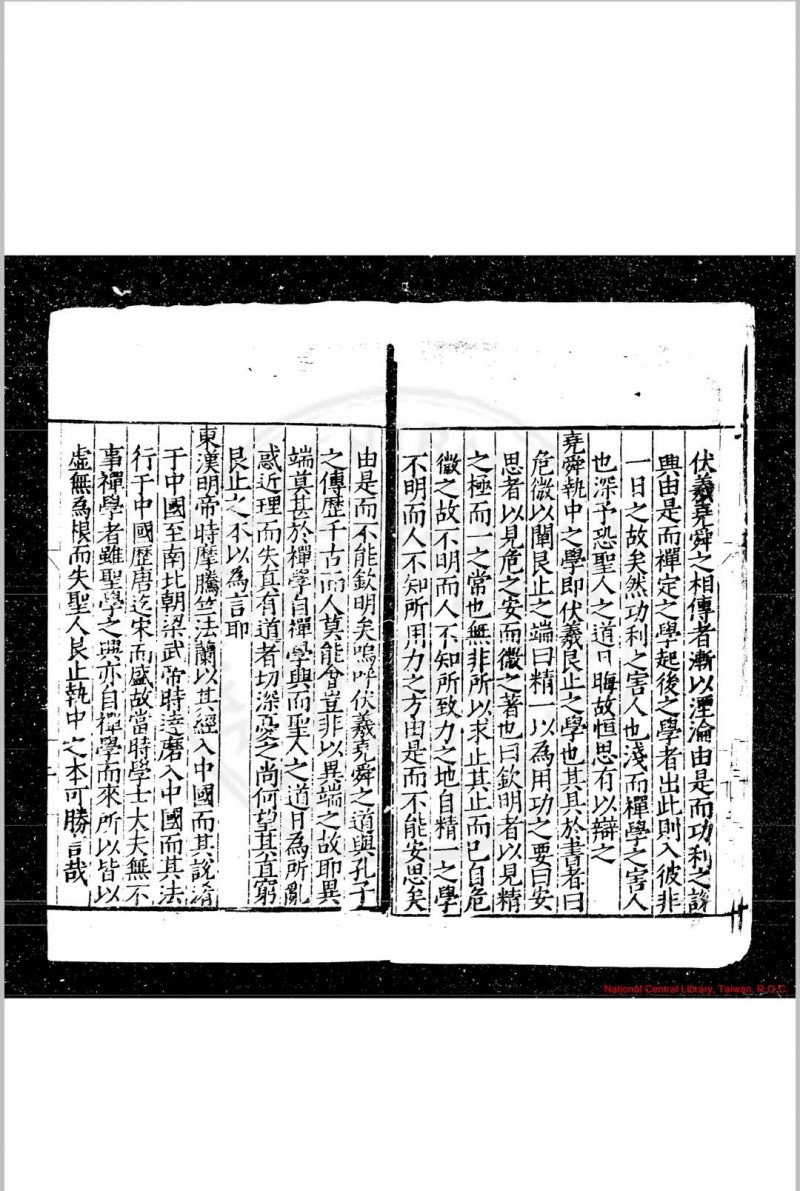 伏羲堯舜之相傳者漸以湮淪由是而功利之說
興由是而禪定之學起後之學者出此則入彼非
一日之故矣然功利之害人也淺而禪學之害人
也深予恐聖人之道日晦故恒思有以辯之
堯舜執中之學即伏羲艮止之學也其具於書者曰
危微以闡艮止之端曰精一以為用功之要曰安
思者以見危之安而微之著也曰欽明者以見精
之極而一之常也無非所以求止其止而已自危
微之故不明而人不知所致力之地自精一之學
不明而人不知所用力之方由是而不能安思矣
由是而不能欽明矣嗚呼伏羲堯舜之道與孔子
之傳歷千古而人莫能會豈非以異端之故耶異
端莫甚於禪學自禪學興而聖人之道日為所亂
惑近理而失真有道者切深憂之尚何望其真窮
艮止之本以為言耶
東漢明帝時摩騰竺法蘭以其經入中國而其說淆
于中國至南北朝梁武帝時達磨入中國而其法
行于中國歷唐迄宋而盛故當時學士大夫無不
事禪學者雖聖學之興亦自禪學而來所以皆以
虛無為根而失聖人艮止執中之本可勝言哉
National Central Library, Taiwan, R.O.C.